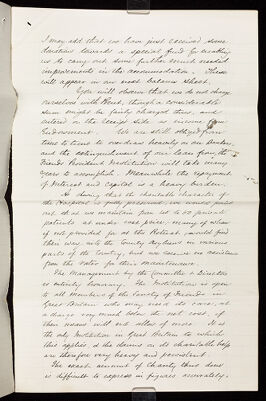 I may add that we have just received some
donations towards a special fund for enabling
us to carry out some further much needed
improvements in the accommodation. These
will appear in our next balance sheet.
You will observe that we do not charge
ourselves with Rent, though a considerable
sum might be fairly charged thus, and
entered on the receipt side as income from
Endowment. We are still obliged from
time to time to overdraw heavily on our bankers,
and the extinguishment of our loan from the
Friends Provident Institution will take many
years to accomplish. Meanwhile the repayment
of interest and capital is a heavy burden.
As showing that the charitable character of
the Hospital is fully preserved, we would point
out that we maintain from 40 to 50 private
patients at under cost price, many of whom
if not provided for at the Retreat would find
their way into the County Asylums in various
parts of the Country, but we receive no assistance
from the rates for their maintenance.
The management by the Committee & Directors
is entirely honorary. The Institution is open
to all Members of the Society of Friends in
Great Britain who may need its care, at
a charge very much below the cost, if
their means will not allow of more. It is
the only Institution in Great Britain to which
this applies, & the claims on its charitable help
are therefore very heavy and persistent.
The exact amount of Charity thus done
is difficult to express in figures accurately,